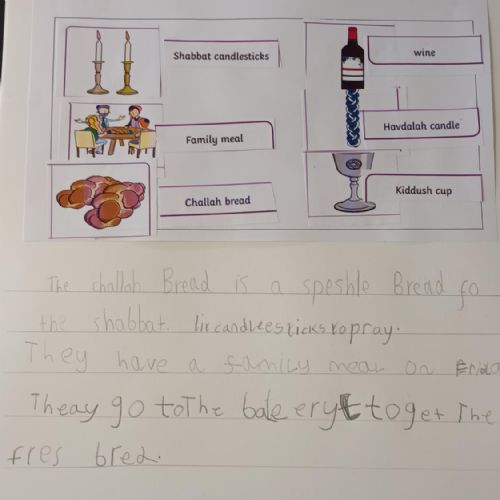 Shabbat candlesticks
wine
Family meal
Havdalah candle
Challah bread
Kiddush cup
The challah Bread is a speshle Bread fo
the shabbat. candleesticks to pray.
They have a family meal on
Theay go to The bakeery to get The
fres bred.